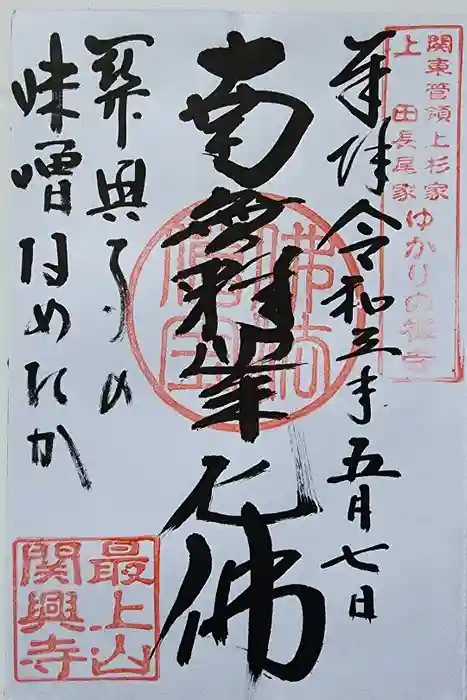 関東管領上杉家
上田長尾家
ゆかりの禅寺
奉拝 令和三年五月七日
南無釈迦牟尼佛
佛法僧宝
関興寺の
味噌なめたか
最上山
関興寺